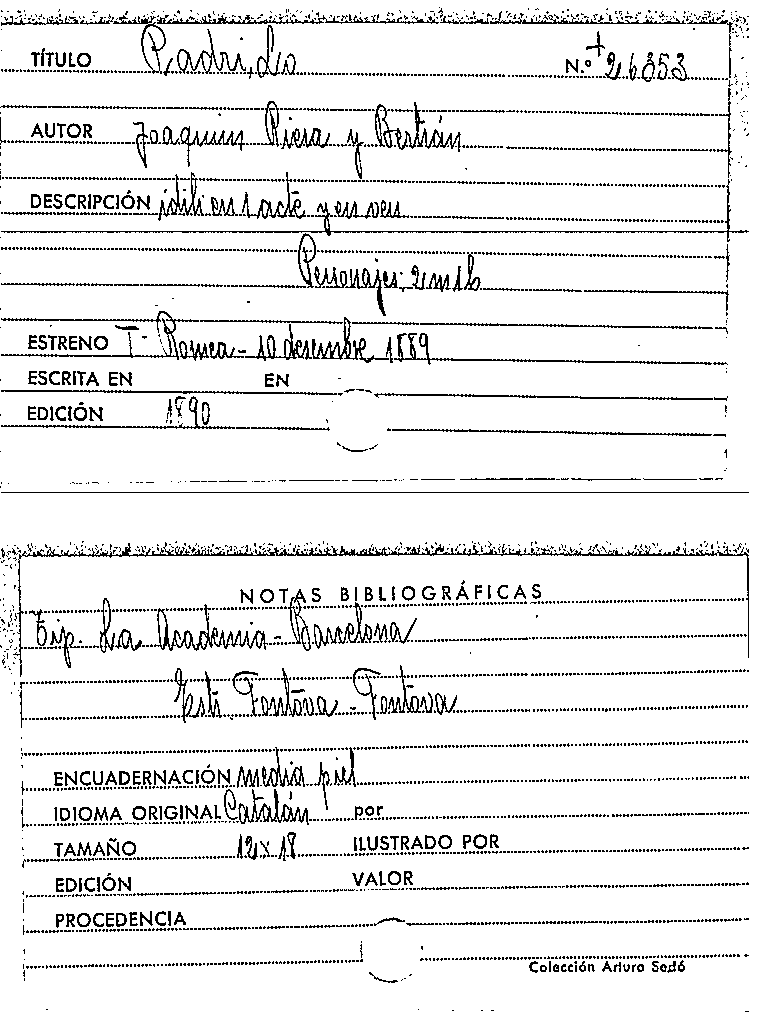 TÍTULO Padri, Lo N.º + 26353
AUTOR Joaquim Riera y Bertrán
DESCRIPCIÓN idili en 1 acte y en vers
Personajes: 2 m 1 h
ESTRENO Tº Romea - 10 desembre 1889
ESCRITA EN EN
EDICIÓN 1890
NOTAS BIBLIOGRÁFICAS
Tip. La Academia - Barcelona
Fontova - Fontova
ENCUADERNACIÓN media piel
IDIOMA ORIGINAL Catalán por
TAMAÑO 12 x 18 ILUSTRADO POR
EDICIÓN VALOR
PROCEDENCIA
Colección Arturo Sedó